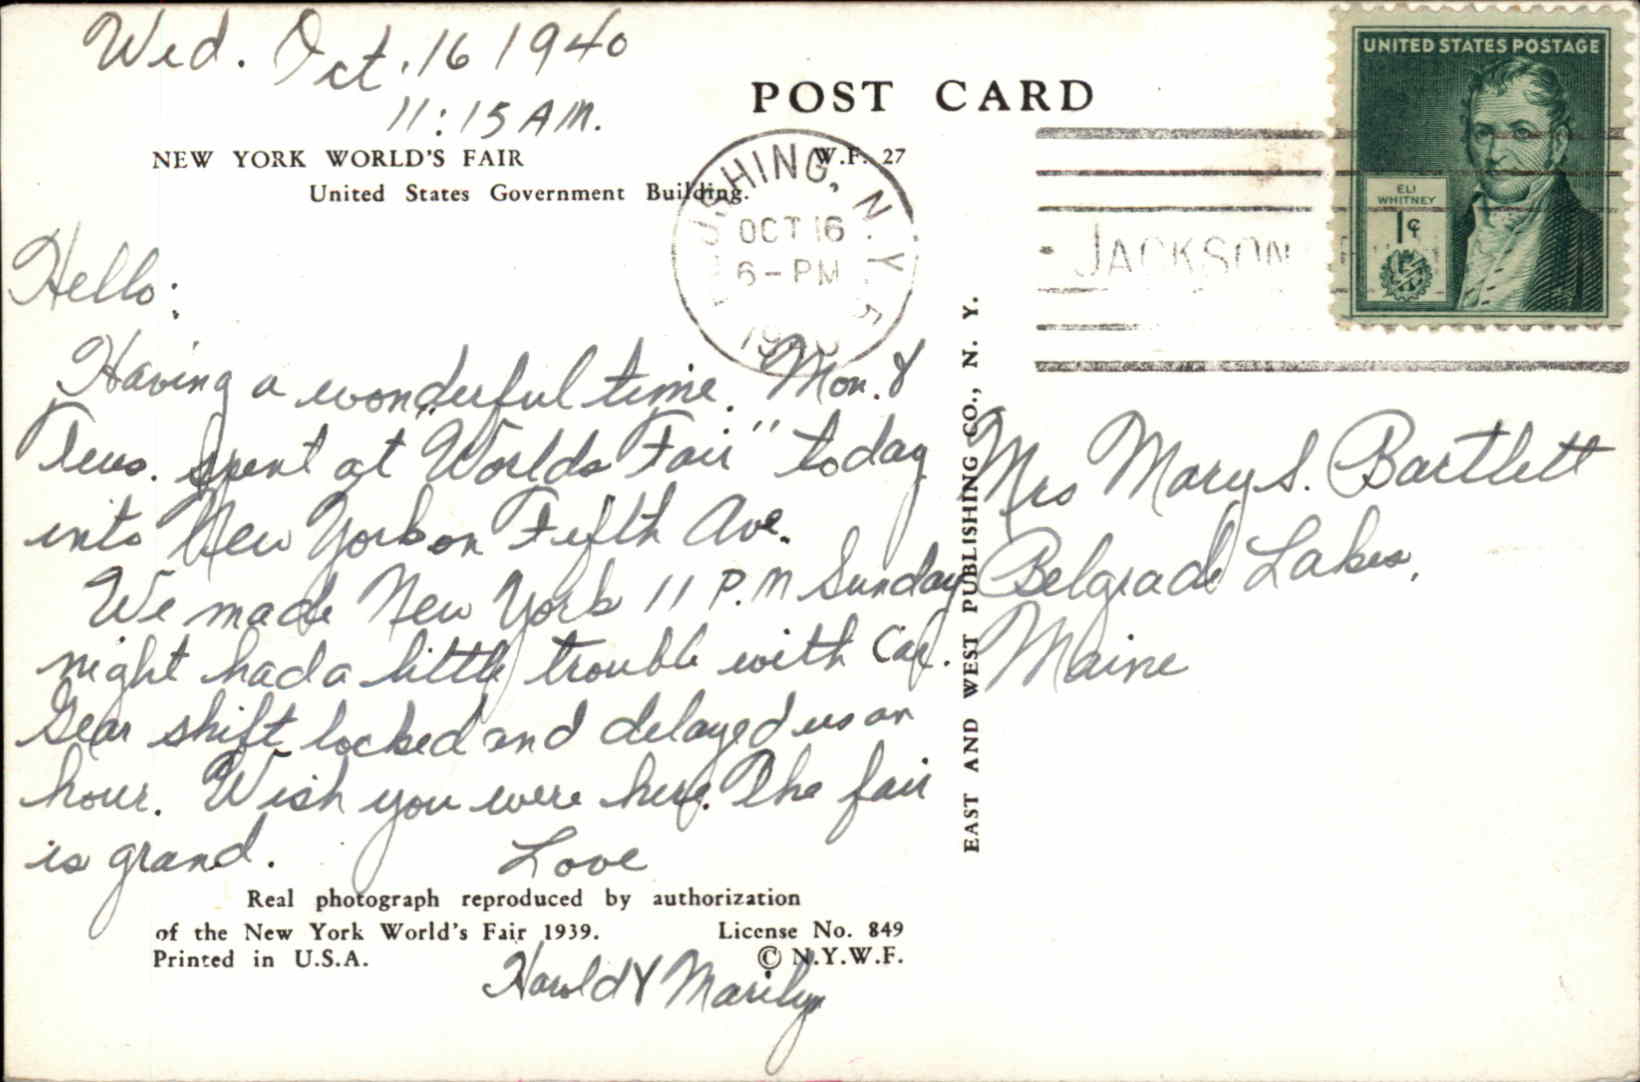 Wed. Oct. 16 1940
11:15 AM.
POST CARD
NEW YORK WORLD'S FAIR W.F. 27
United States Government Building.
Hello:
Having a wonderful time. Mon. &
Tues. spent at "Worlds Fair" today
into New York on Fifth Ave.
We made New York 11 P.M Sunday
night had a little trouble with Car.
Gear shift locked and delayed us an
hour. Wish you were here. The fair
is grand.
Love
Harold & Marilyn
Real photograph reproduced by authorization
of the New York World's Fair 1939. License No. 849
Printed in U.S.A. © N.Y.W.F.
EAST AND WEST PUBLISHING CO., N. Y.
FLUSHING, N.Y.
OCT 16
6-PM
1940
JACKSON
UNITED STATES POSTAGE
ELI
WHITNEY
1¢
Mrs Mary S. Bartlett
Belgrade Lakes,
Maine